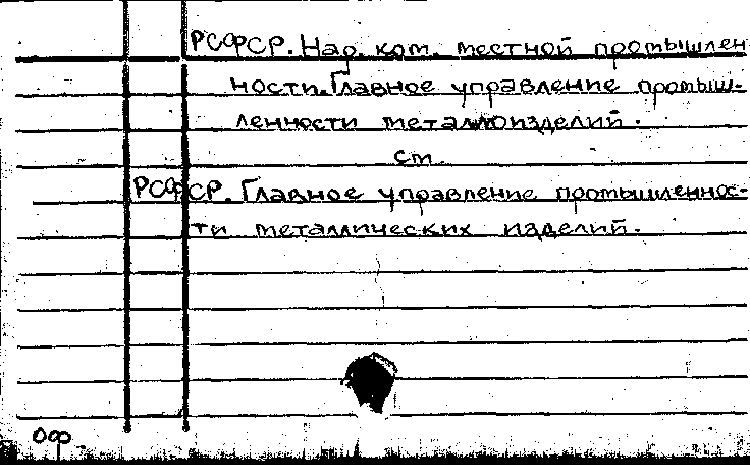 РСФСР. Нар. ком. местной промышлен
ности. Главное управление промыш-
ленности металлоизделий.
см.
РСФСР. Главное управление промышленнос-
ти металлических изделий.
ООф